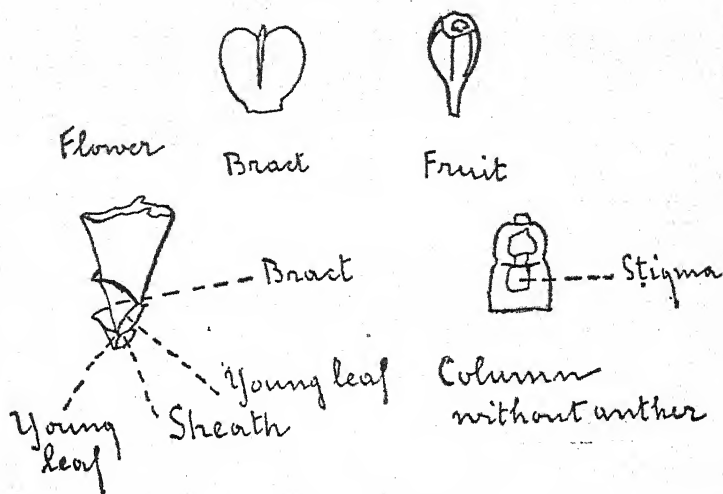 Flower
Bract
Fruit
Bract
Stigma
Young leaf
Column
without anther
Young
leaf
Sheath